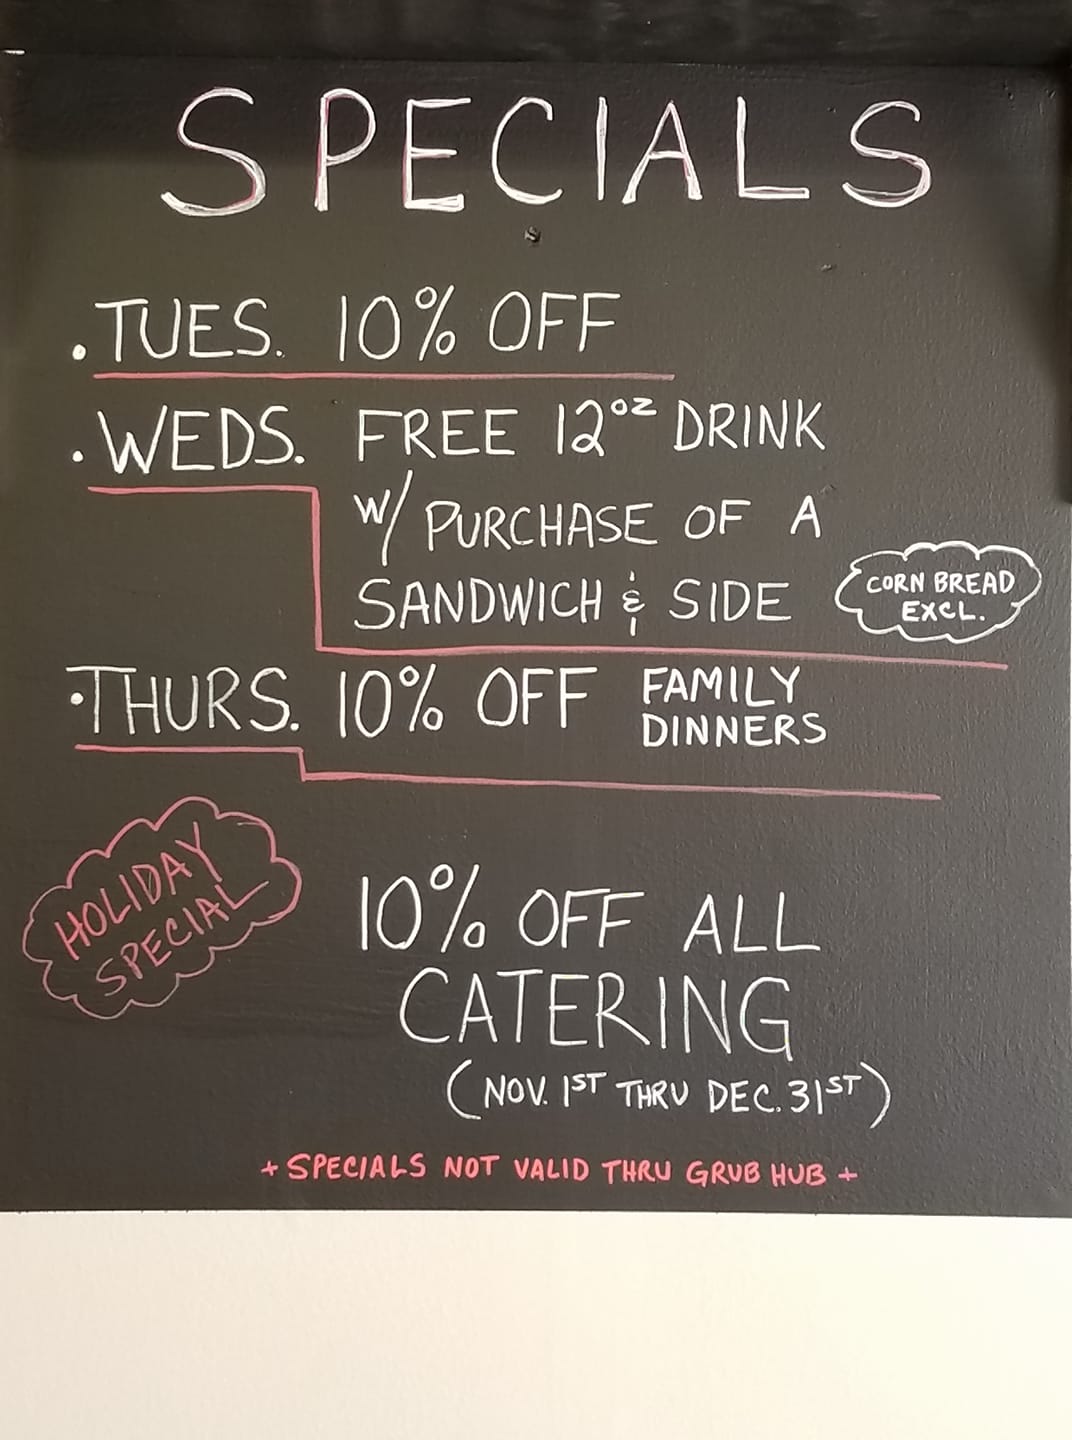 SPECIALS
• TUES. 10% OFF
• WEDS. FREE 12oz DRINK
W/ PURCHASE OF A
SANDWICH & SIDE
CORN BREAD
EXCL.
• THURS. 10% OFF FAMILY
DINNERS
HOLIDAY
SPECIAL
10% OFF ALL
CATERING
(NOV. 1ST THRU DEC. 31ST)
+ SPECIALS NOT VALID THRU GRUB HUB +